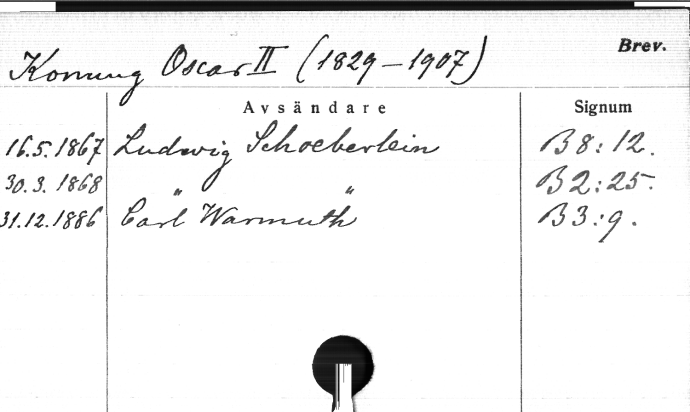 Brev.
Konung Oscar II (1829–1907)
Avsändare Signum
16.5.1867 Ludwig Schoeberlein B 8:12.
30.3.1868 " " B 2:25.
31.12.1886 Carl Warmuth B 3:9.